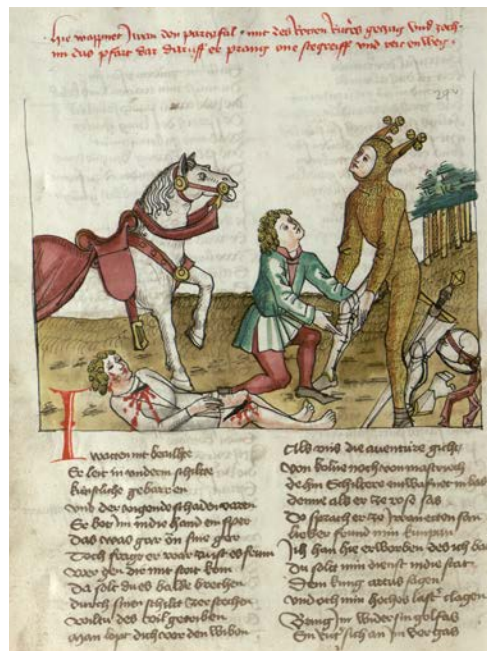 hie wappnet Iwan den partzifal mit des Roten Ritters gezüg und zoch
im das pfärt dar daruff er sprang one stegreiff und reit en weg
29v
Er leit in andern schilte
künstliche gebarren
und der vigende schaden varen
Er bot im in die hand ein sper
Das was gar ön sine ger
Doch frage er war zu ist es frum
wer gen dir mit strit kom
Da solt du es balde brechen
durch sinen schilt zer stechen
wiltu des vil getriben
man lopt dich vor den wiben
Als uns die aventure giht
von kölne noch von mastriht
dekein Schiltere entwarff in bas
denne als er ze ross sas
Do sprach er ze Iwanetten san
lieber fründ min kumpan
Ich han hie erworben des ich bat
Du solt min dienst in die stat
Dem kung artus sagen
und och min hochos last clagen
Bring Im wider sin golfas
Ein sich an Im vergas